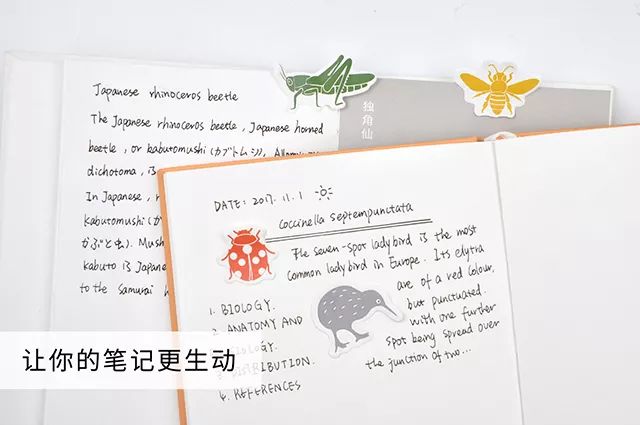 Japanese rhinoceros beetle
The Japanese rhinoceros beetle, Japanese horned
beetle, or kabutomushi (カブトムシ),
dichotoma, is
In Japanese,
kabutomushi
かぶと虫). Mush
kabuto is Japane
to the Samurai
独角仙
DATE: 2017. 11. 1
Coccinella septempunctata
The seven-spot ladybird is the most
common ladybird in Europe. Its elytra
are of a red colour,
but punctuated
with one further
spot being spread over
the junction of two...
1. BIOLOGY.
2. ANATOMY AND
4. REFERENCES
让你的笔记更生动